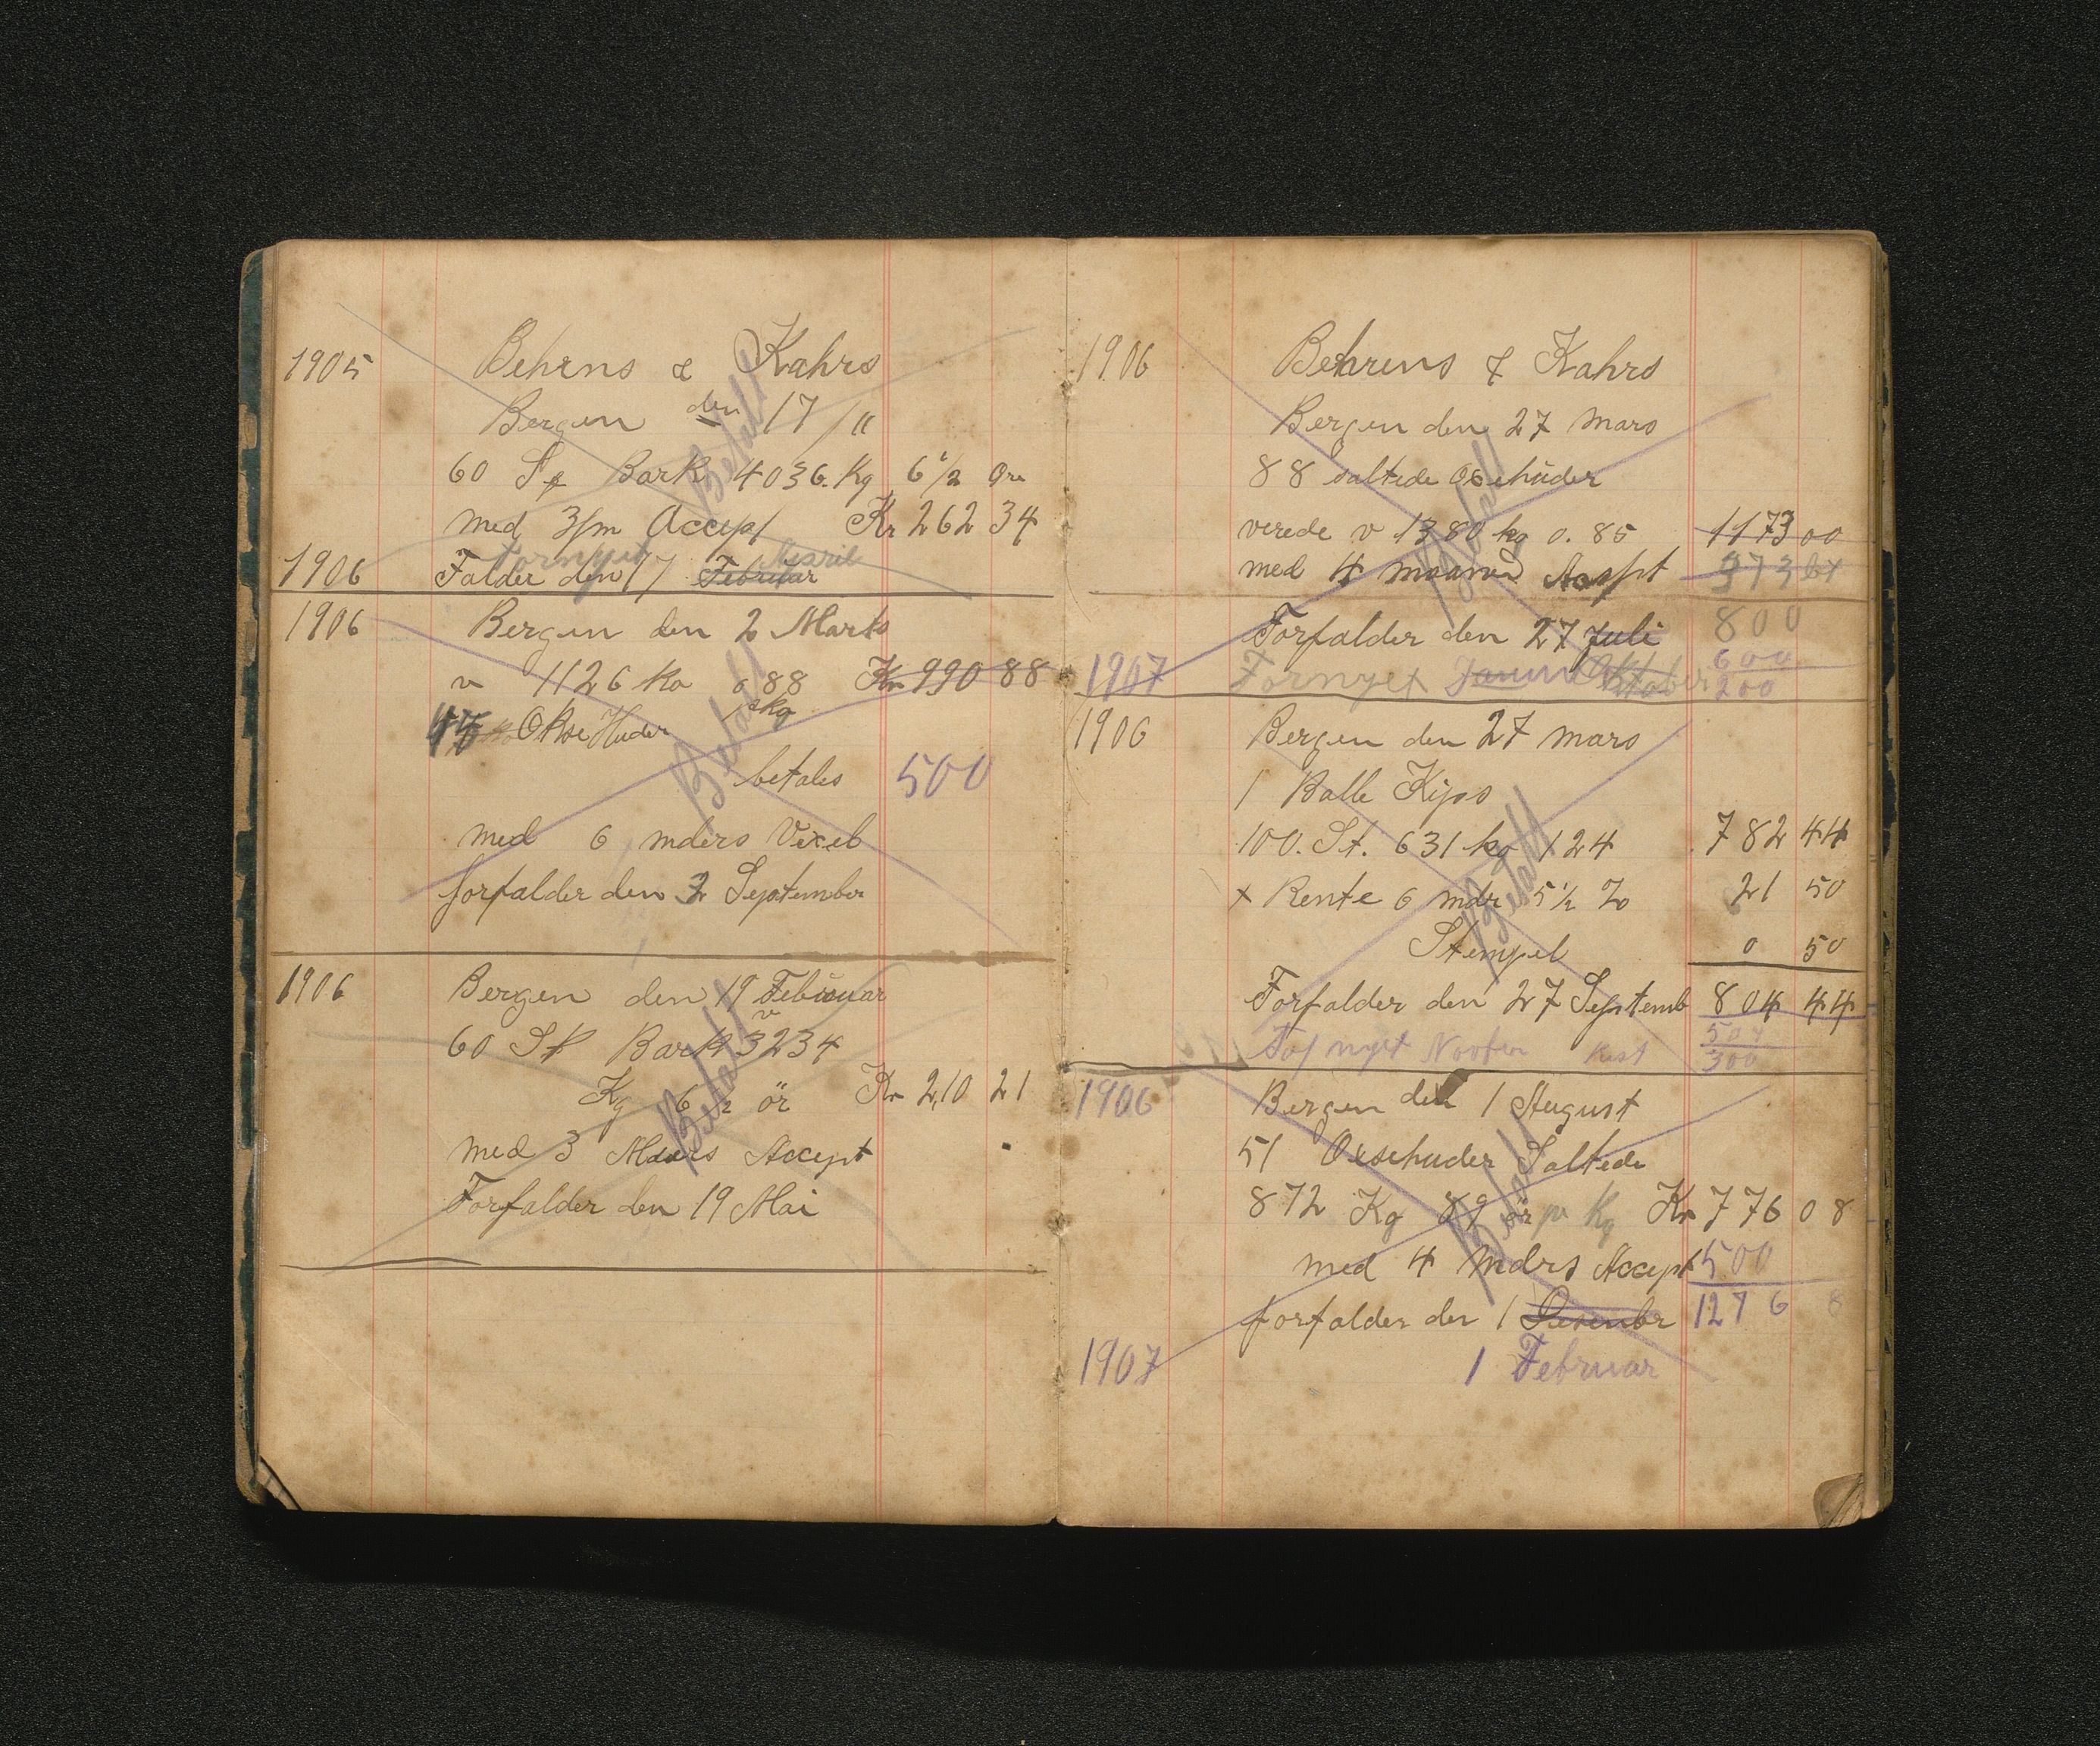 1905 Behrns & Kahrs
Bergen den 17/11
60 Sk Bark 4036. Kg 6 1/2 Ore
med 3/m Accept Kr 262 34
Fornyet Aspril
1906 Falder den 17 Februar
1906 Bergen den 2 Marts
v 1126 Ko a 88 Kr 990 88
pkg
Okse Huder
betales 500
med 6 mders Vexel
forfalder den 2 September
1906 Bergen den 19 Februar
60 Sk Bark v 3234
Kg 6 1/2 ör Kr 210 21
med 3 Mders Accept
Forfalder den 19 Mai
Betalt
Betalt
Betalt
1906 Behrens & Kahrs
Bergen den 27 Mars
88 saltede Oxehuder
verede v 1380 kg o. 85 1173 00
med 4 maaned Acspt
Forfalder den 27 Juli 800
600
1907 Fornyet Oktober 200
1906 Bergen den 27 mars
1 Balle Kips
100. St. 631 ko 124 782 44
+ Rente 6 mdr 5 1/2 % 21 50
Stempel 0 50
Forfalder den 27 Septemb 804 44
504
Fornyet Rest 300
1906 Bergen den 1 August
51 Oxsehuder Saltede
872 Kg 89 ör pr Kg Kr 776 08
med 4 Mdrs Accept 500
forfalder den 1 Desembr 1276 8
1907 1 Februar
Betalt
Betalt
Betalt